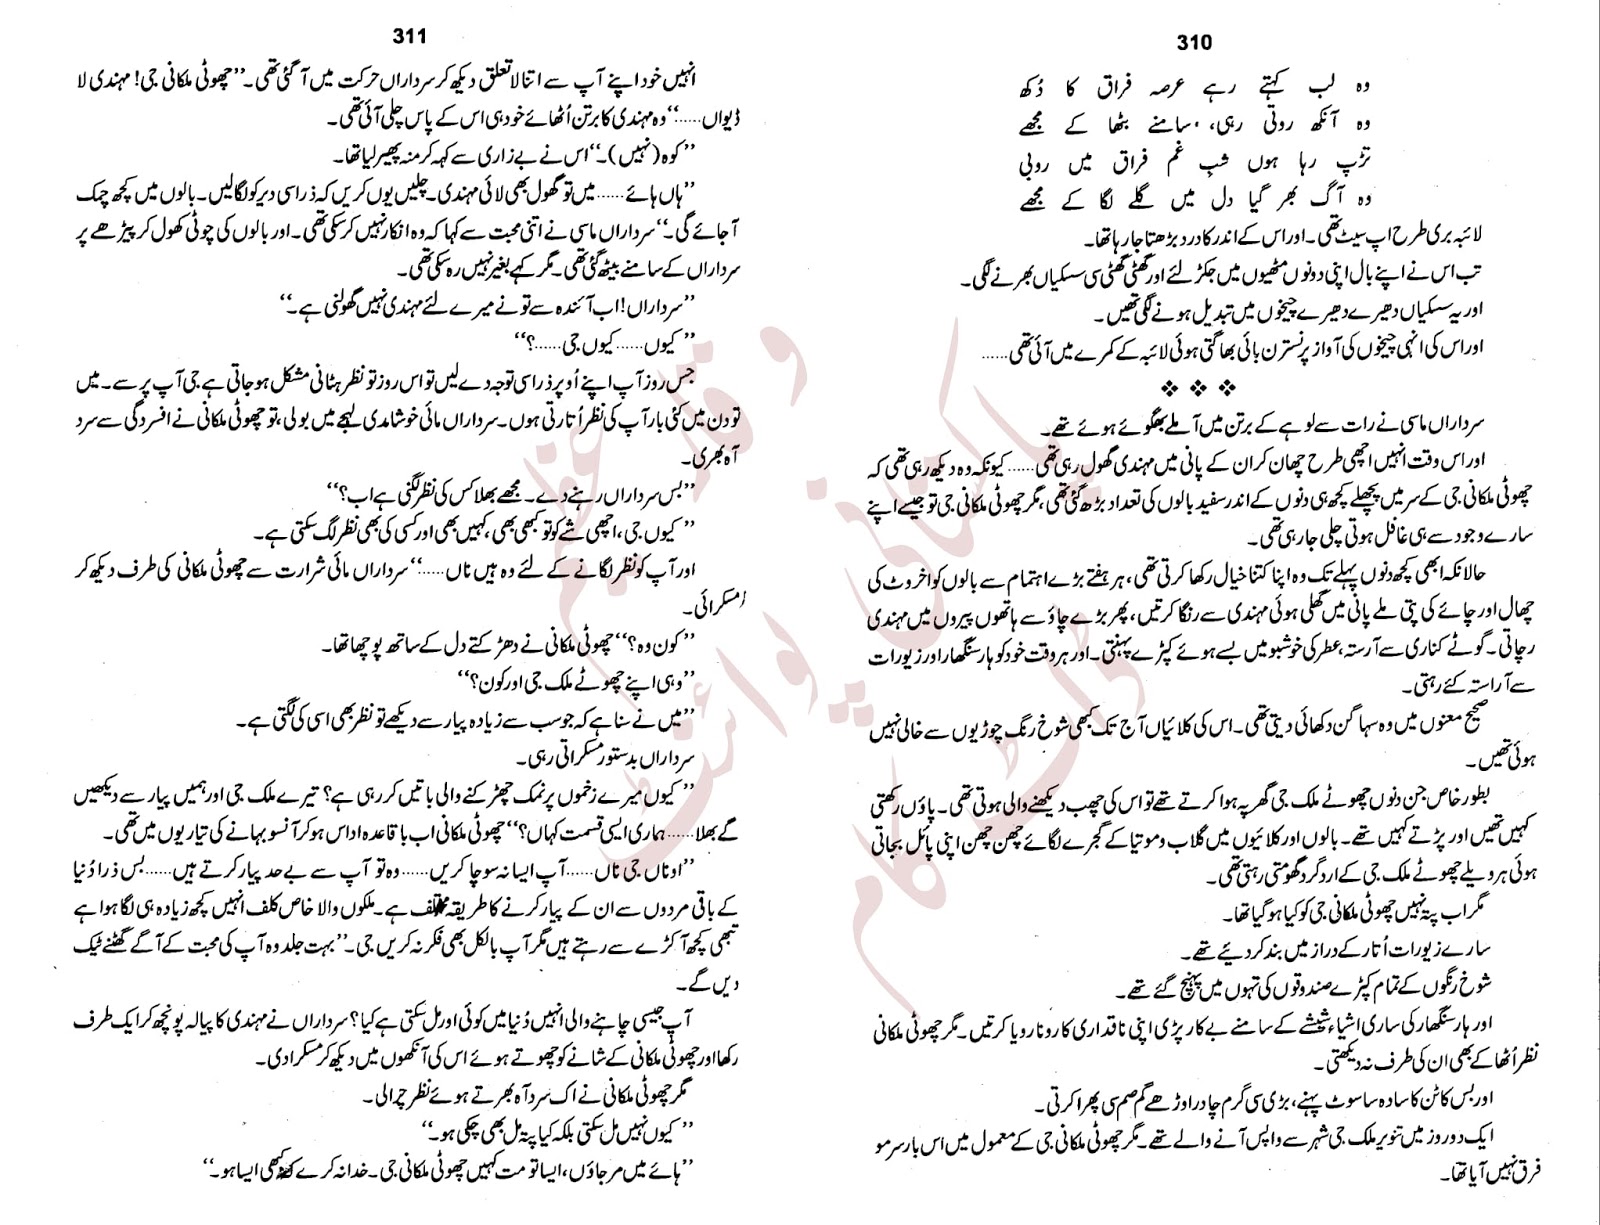 310
وہ لب کہتے رہے عرصہ فراق کا دُکھ
وہ آنکھ روتی رہی، سامنے بٹھا کے مجھے
تڑپ رہا ہوں شبِ غم فراق میں روبی
وہ آگ بھر گیا دل میں گلے لگا کے مجھے
لائبہ بری طرح اپ سیٹ تھی۔ اور اس کے اندر کا درد بڑھتا جا رہا تھا۔
تب اس نے اپنے بال اپنی دونوں مٹھیوں میں جکڑ لئے اور گھٹی گھٹی سی سسکیاں بھرنے لگی۔
اور یہ سسکیاں دھیرے دھیرے چیخوں میں تبدیل ہونے لگی تھیں۔
اور اس کی انہی چیخوں کی آواز پر نسترن بائی بھاگتی ہوئی لائبہ کے کمرے میں آئی تھی......
❖ ❖ ❖
سرداراں ماسی نے رات سے لوہے کے برتن میں آملے بھگوئے ہوئے تھے۔
اور اس وقت انہیں اچھی طرح چھان کر ان کے پانی میں مہندی گھول رہی تھی...... کیونکہ وہ دیکھ رہی تھی کہ
چھوٹی ملکانی جی کے سر میں پچھلے کچھ ہی دنوں کے اندر سفید بالوں کی تعداد بڑھ گئی تھی، مگر چھوٹی ملکانی جی تو جیسے اپنے
سارے وجود سے ہی غافل ہوتی چلی جا رہی تھی۔
حالانکہ ابھی کچھ دنوں پہلے تک وہ اپنا کتنا خیال رکھا کرتی تھی، ہر ہفتے بڑے اہتمام سے بالوں کو اخروٹ کی
چھال اور چائے کی پتی ملے پانی میں گھلی ہوئی مہندی سے رنگا کرتیں، پھر بڑے چاؤ سے ہاتھوں پیروں میں مہندی
رچاتی۔ گوٹے کناری سے آراستہ، عطر کی خوشبو میں بسے ہوئے کپڑے پہنتی۔ اور ہر وقت خود کو ہار سنگھار اور زیورات
سے آراستہ کئے رہتی۔
صحیح معنوں میں وہ سہاگن دکھائی دیتی تھی۔ اس کی کلائیاں آج تک کبھی شوخ رنگ چوڑیوں سے خالی نہیں
ہوئی تھیں۔
بطورِ خاص جن دنوں چھوٹے ملک جی گھر پہ ہوا کرتے تھے تو اس کی چھب دیکھنے والی ہوتی تھی۔ پاؤں رکھتی
کہیں تھیں اور پڑتے کہیں تھے۔ بالوں اور کلائیوں میں گلاب و موتیا کے گجرے لگائے چھن چھن اپنی پائل بجاتی
ہوئی ہر ویلے چھوٹے ملک جی کے ارد گرد گھومتی رہتی تھی۔
مگر اب پتہ نہیں چھوٹی ملکانی جی کو کیا ہو گیا تھا۔
سارے زیورات اُتار کے دراز میں بند کر دیئے تھے۔
شوخ رنگوں کے تمام کپڑے صندوقوں کی تہوں میں پہنچ گئے تھے۔
اور ہار سنگھار کی ساری اشیاء شیشے کے سامنے بے کار پڑی اپنی ناقدری کا رونا رویا کرتیں۔ مگر چھوٹی ملکانی
نظر اُٹھا کے بھی ان کی طرف نہ دیکھتی۔
اور بس کاٹن کا سادہ سا سوٹ پہنے، بڑی سی گرم چادر اوڑھے گم صم سی پھرا کرتی۔
ایک دو روز میں تنویر ملک جی شہر سے واپس آنے والے تھے۔ مگر چھوٹی ملکانی جی کے معمول میں اس بار سرمو
فرق نہیں آیا تھا۔
311
انہیں خود اپنے آپ سے اتنا لاتعلق دیکھ کر سرداراں حرکت میں آ گئی تھی۔ ’’چھوٹی ملکانی جی! مہندی لا
ڈیواں......‘‘ وہ مہندی کا برتن اُٹھائے خود ہی اس کے پاس چلی آئی تھی۔
’’کوہ (نہیں)۔‘‘ اس نے بے زاری سے کہہ کر منہ پھیر لیا تھا۔
’’ہاں ہائے...... میں تو گھول بھی لائی مہندی۔ چلیں یوں کریں کہ ذرا سی دیر کو لگا لیں۔ بالوں میں کچھ چمک
آ جائے گی۔‘‘ سرداراں ماسی نے اتنی محبت سے کہا کہ وہ انکار نہیں کر سکی تھی۔ اور بالوں کی چوٹی کھول کر پیڑھے پر
سرداراں کے سامنے بیٹھ گئی تھی۔ مگر کہے بغیر نہیں رہ سکی تھی۔
’’سرداراں! اب آئندہ سے تو نے میرے لئے مہندی نہیں گھولنی ہے۔‘‘
’’کیوں...... کیوں جی......؟‘‘
جس روز آپ اپنے اُوپر ذرا سی توجہ دے لیں تو اس روز تو نظر ہٹانی مشکل ہو جاتی ہے جی آپ پر سے۔ میں
تو دن میں کئی بار آپ کی نظر اُتارتی ہوں۔ سرداراں مائی خوشامدی لہجے میں بولی، تو چھوٹی ملکانی نے افسردگی سے سرد
آہ بھری۔
’’بس سرداراں رہنے دے۔ مجھے بھلا کس کی نظر لگنی ہے اب؟‘‘
’’کیوں جی، اچھی شے کو تو کبھی بھی، کہیں بھی اور کسی کی بھی نظر لگ سکتی ہے۔
اور آپ کو نظر لگانے کے لئے وہ ہیں ناں......‘‘ سرداراں مائی شرارت سے چھوٹی ملکانی کی طرف دیکھ کر
مسکرائی۔
’’کون وہ؟‘‘ چھوٹی ملکانی نے دھڑکتے دل کے ساتھ پوچھا تھا۔
’’وہی اپنے چھوٹے ملک جی اور کون؟‘‘
’’میں نے سنا ہے کہ جو سب سے زیادہ پیار سے دیکھے تو نظر بھی اسی کی لگتی ہے۔
سرداراں بدستور مسکراتی رہی۔
’’کیوں میرے زخموں پر نمک چھڑکنے والی باتیں کر رہی ہے؟ تیرے ملک جی اور ہمیں پیار سے دیکھیں
گے بھلا...... ہماری ایسی قسمت کہاں؟‘‘ چھوٹی ملکانی اب باقاعدہ اداس ہو کر آنسو بہانے کی تیاریوں میں تھی۔
’’اوناں جی ناں...... آپ ایسا نہ سوچا کریں...... وہ تو آپ سے بے حد پیار کرتے ہیں...... بس ذرا دُنیا
کے باقی مردوں سے ان کے پیار کرنے کا طریقہ مختلف ہے۔ ملکوں والا خاص کلف انہیں کچھ زیادہ ہی لگا ہوا ہے
تبھی کچھ آکڑے سے رہتے ہیں مگر آپ بالکل بھی فکر نہ کریں جی۔‘‘ بہت جلد وہ آپ کی محبت کے آگے گھٹنے ٹیک
دیں گے۔
آپ جیسی چاہنے والی انہیں دُنیا میں کوئی اور مل سکتی ہے کیا؟ سرداراں نے مہندی کا پیالہ پونچھ کر ایک طرف
رکھا اور چھوٹی ملکانی کے شانے کو چھوتے ہوئے اس کی آنکھوں میں دیکھ کر مسکرا دی۔
مگر چھوٹی ملکانی نے اک سرد آہ بھرتے ہوئے نظر چرا لی۔
’’کیوں نہیں مل سکتی بلکہ کیا پتہ مل بھی چکی ہو۔‘‘
’’ہائے میں مر جاؤں، ایسا تو مت کہیں چھوٹی ملکانی جی۔ خدا نہ کرے کہ کبھی ایسا ہو۔‘‘
پاکستانی پوائنٹ ڈاٹ کام